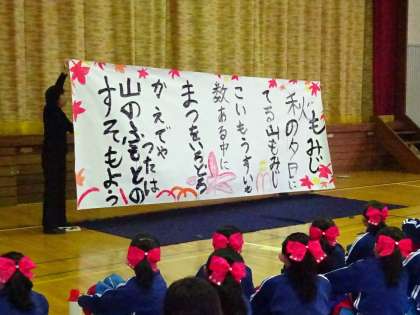 もみじ
秋の夕日に
てる山もみじ
こいもうすいも
数ある中に
まつをいろどる
かえでや
つたは
山のふもとの
すそもよう